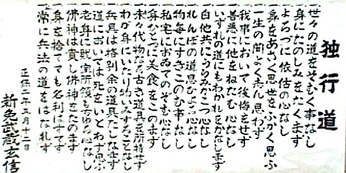 独行道
世々の道をそむく事なし
身にたのしみをたくまず
よろづに依怙の心なし
身をあさく思世をふかく思ふ
一生の間よく心思わず
我事において後悔をせず
善悪に他をねたむ心なし
いづれの道にもわかれをかなしまず
自他共にうらみかこつ心なし
れんぼの道思ひよる心なし
物毎にすきこのむ事なし
私宅においてのぞむ心なし
身ひとつに美食をこのまず
末々代物なる古き道具を所持せず
わが身にいたり物いみする事なし
兵具は格別余の道具たしなまず
道においては死をいとわず思う
老身に財宝所領もちゆる心なし
佛神は貴し佛神をたのまず
身を捨ても名利はすてず
常に兵法の道をはなれず
正保二年五月十二日
新免武蔵玄信